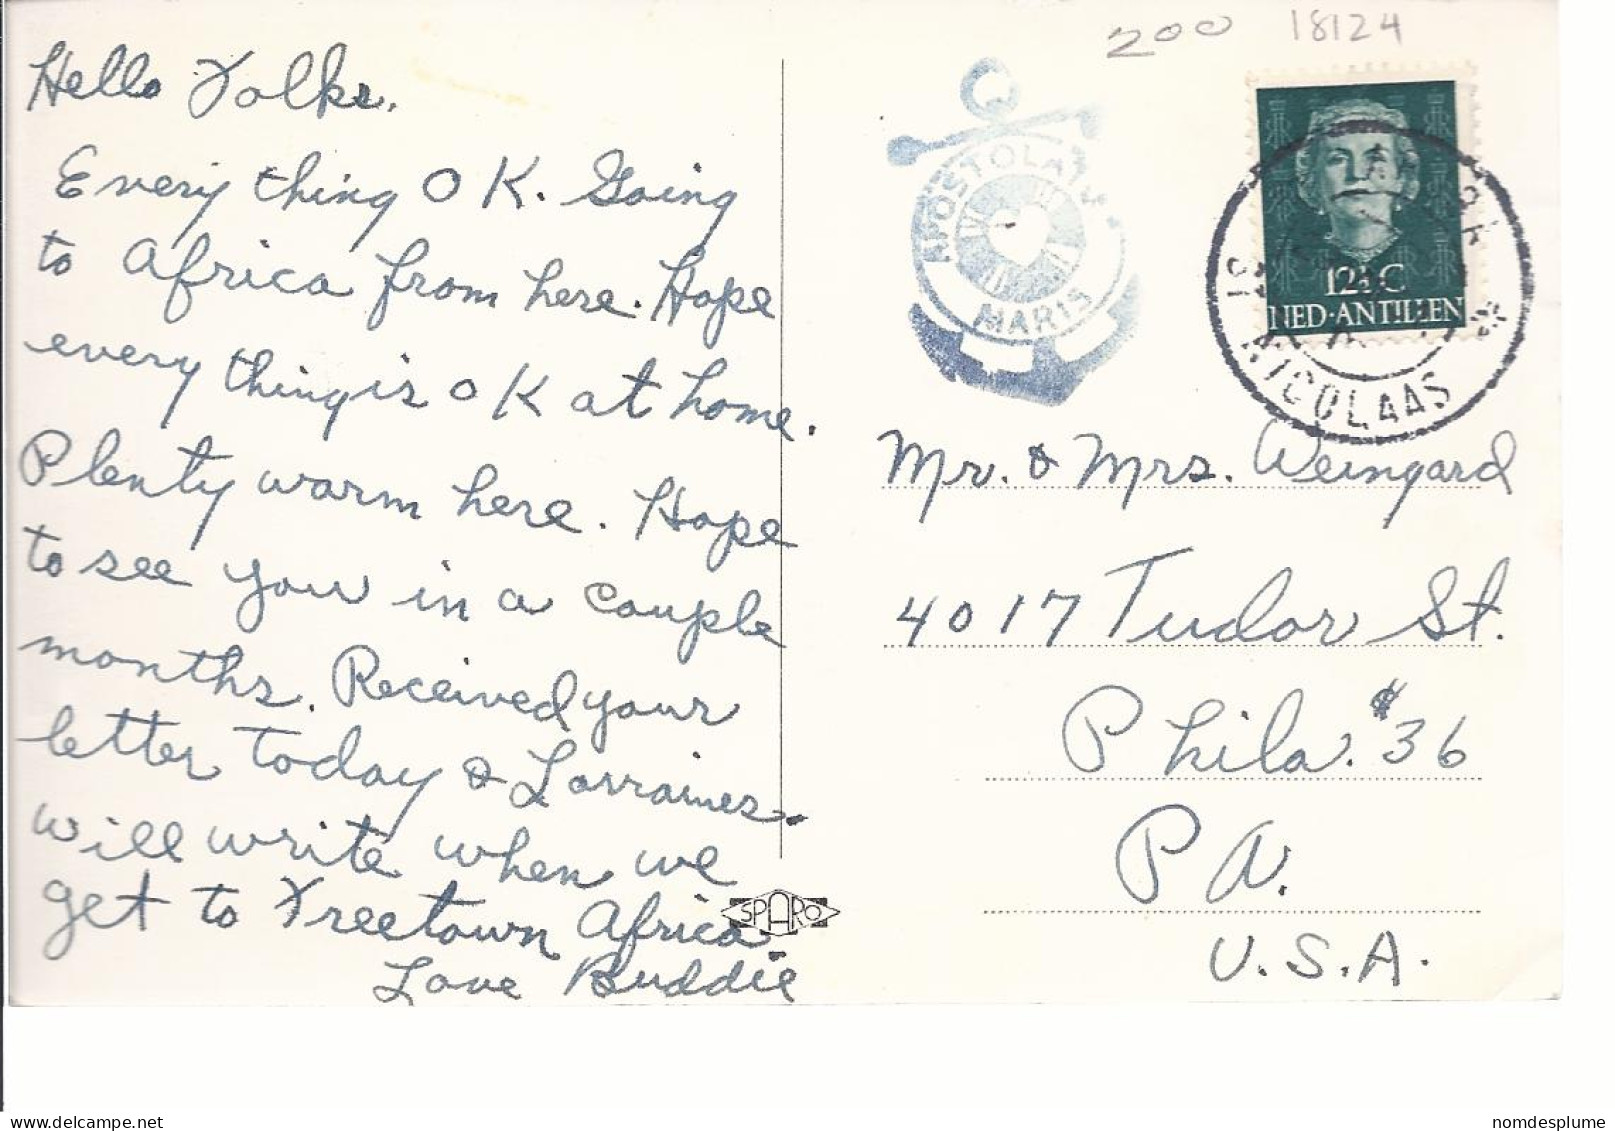 200 18124
Hello Folks.
Every thing OK. Going
to Africa from here. Hope
every thing is OK at home.
Plenty warm here. Hope
to see you in a couple
months. Received your
letter today & Lorraines.
will write when we
get to Freetown Africa.
Love Buddie
APOSTOLATUS
MARIS
12½C
NED·ANTILLEN
NICOLAAS
Mr. & Mrs. Weingard
4017 Tudor St.
Phila. 36
PA.
U.S.A.
SPARO
delcampe.net
nomdesplume